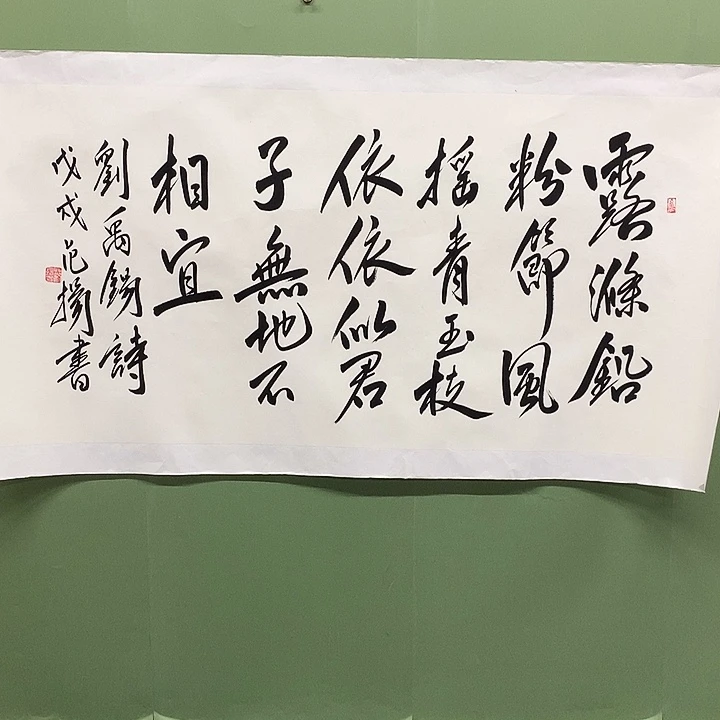 露滌鉛
粉節風
摇青玉枝
依依似君
子無地不
相宜
劉禹錫詩
戊戌范揚書